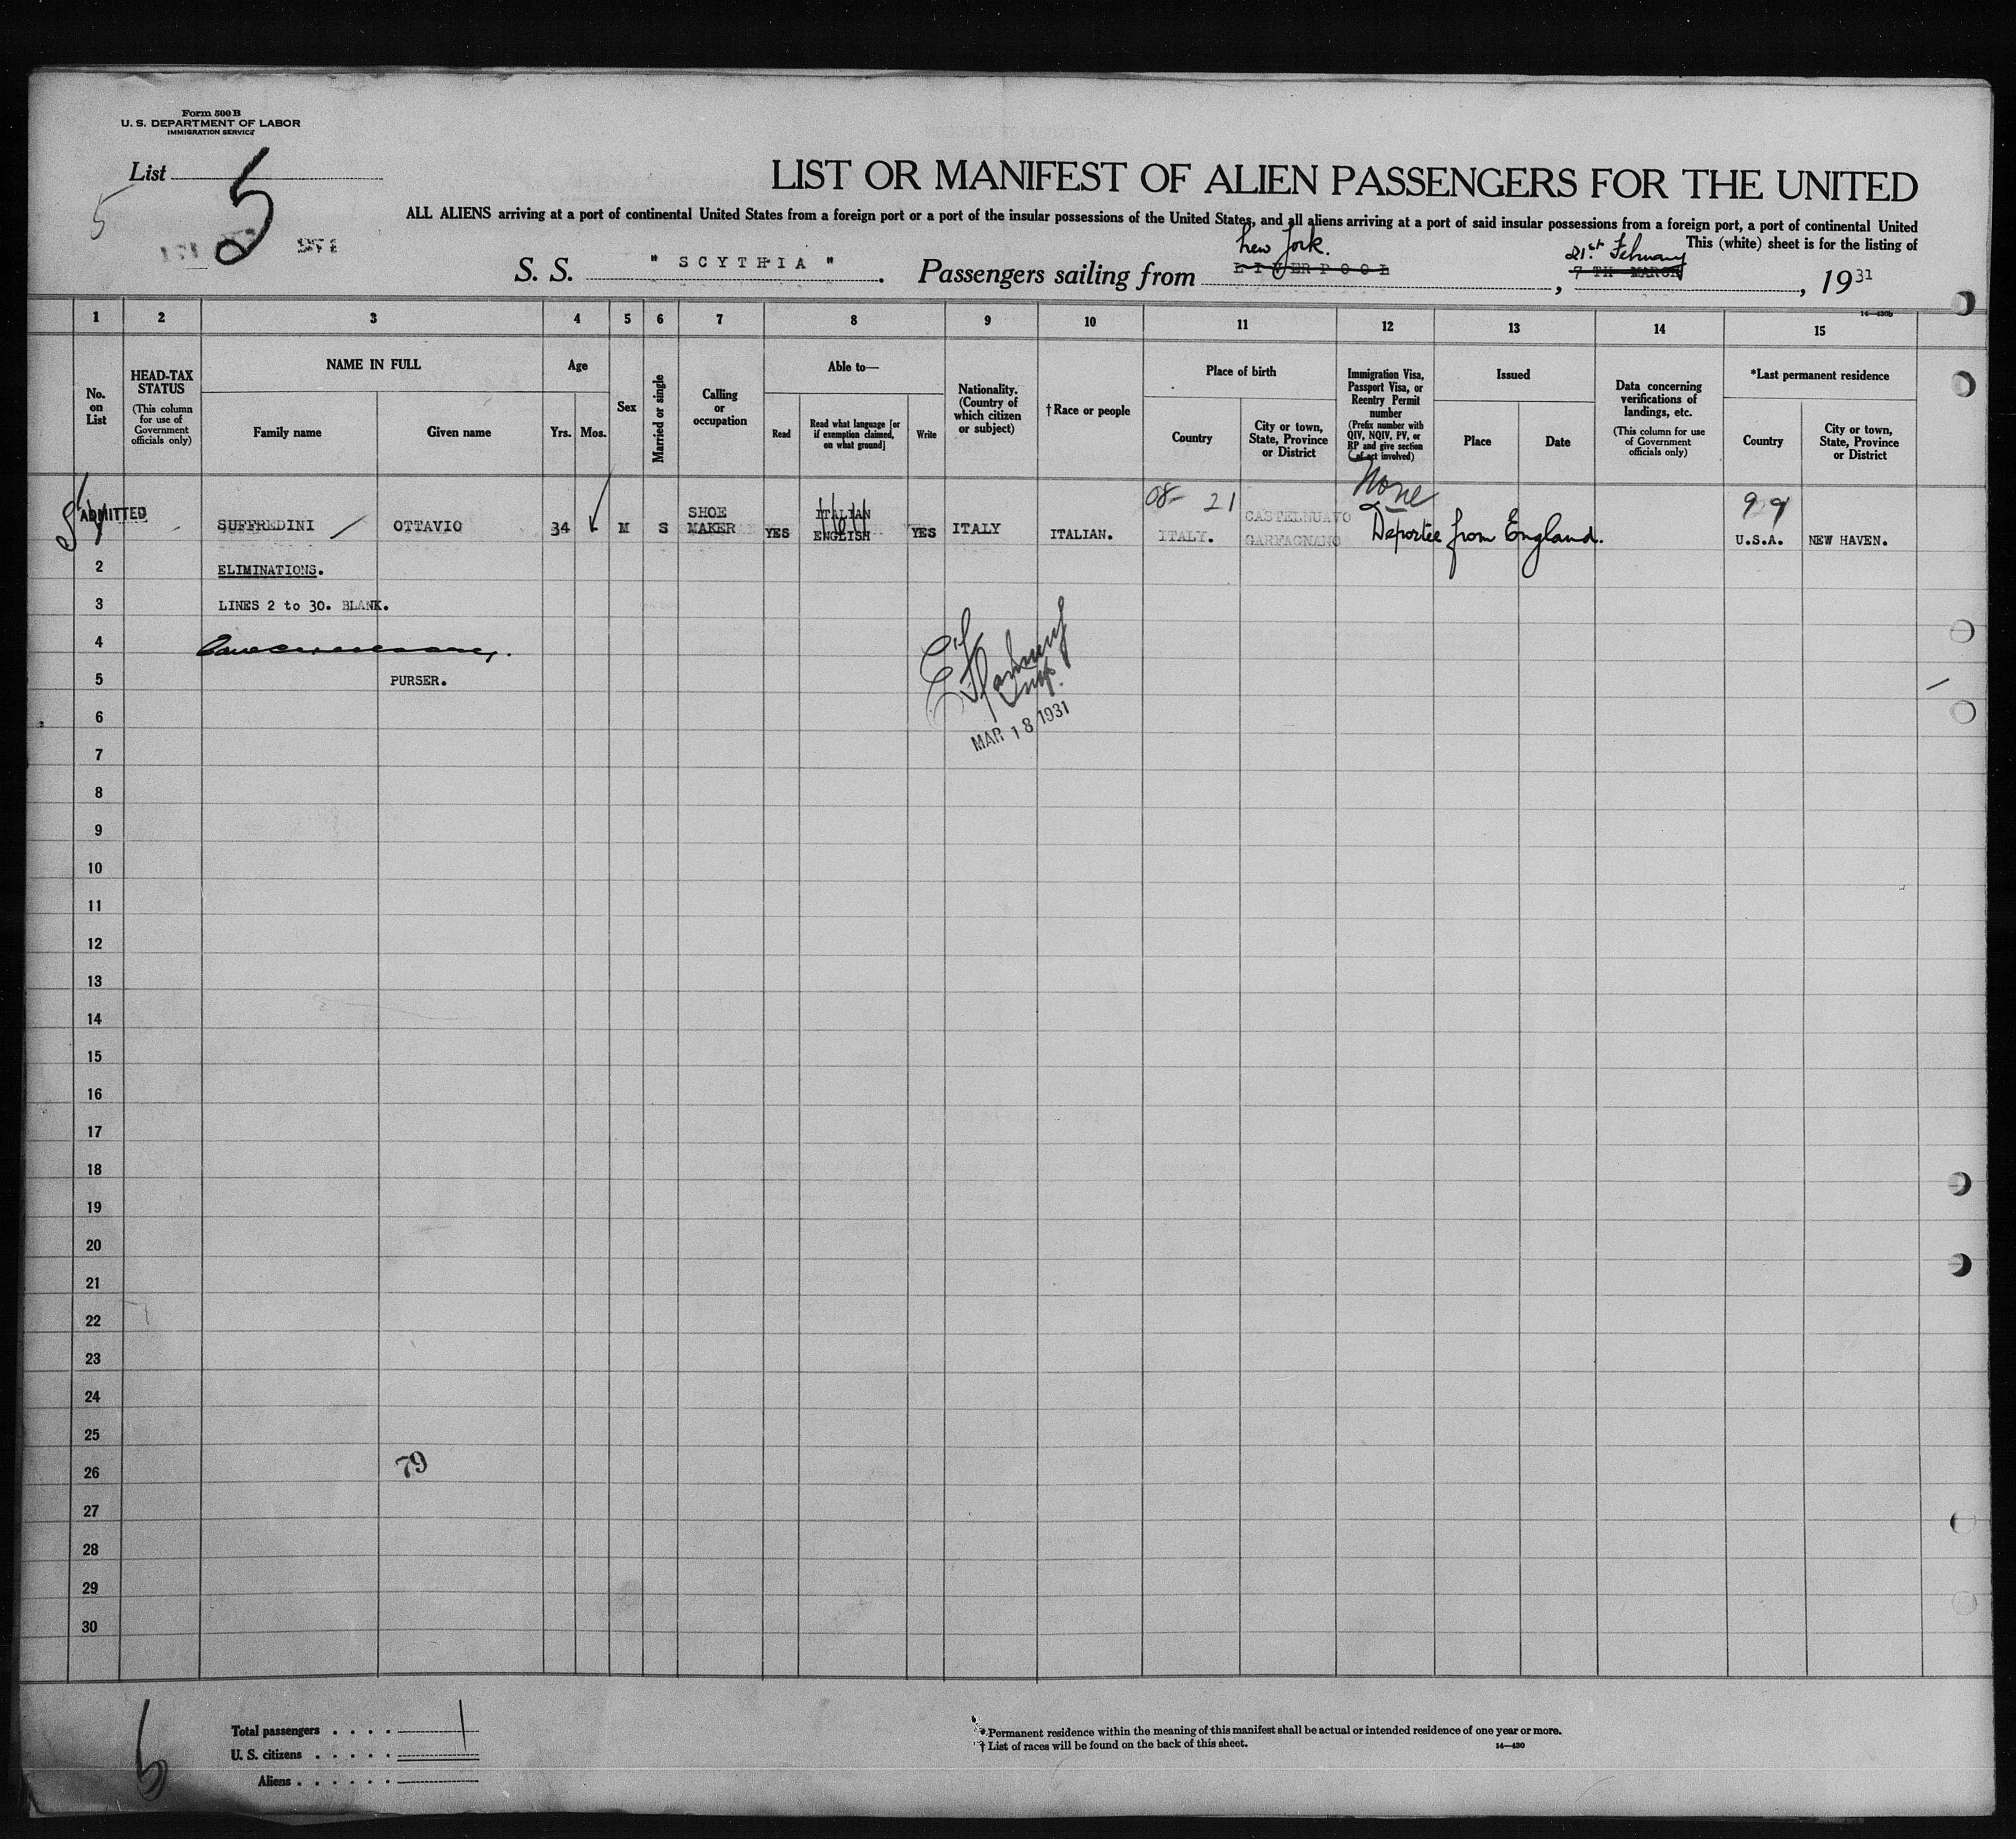 Form 500 B
U. S. DEPARTMENT OF LABOR
IMMIGRATION SERVICE
List 5
5
LIST OR MANIFEST OF ALIEN PASSENGERS FOR THE UNITED
ALL ALIENS arriving at a port of continental United States from a foreign port or a port of the insular possessions of the United States, and all aliens arriving at a port of said insular possessions from a foreign port, a port of continental United
This (white) sheet is for the listing of
New York.
21st February
S. S. " SCYTHIA ". Passengers sailing from LIVERPOOL, 7 TH MARCH, 1931
14—430b
1 2 3 4 5 6 7 8 9 10 11 12 13 14 15
No. on List
HEAD-TAX STATUS
(This column for use of Government officials only)
NAME IN FULL
Family name
Given name
Age
Yrs. Mos.
Sex
Married or single
Calling or occupation
Able to—
Read
Read what language [or if exemption claimed, on what ground]
Write
Nationality. (Country of which citizen or subject)
† Race or people
Place of birth
Country
City or town, State, Province or District
Immigration Visa, Passport Visa, or Reentry Permit number
(Prefix number with QIV, NQIV, PV, or RP and give section of act involved)
Issued
Place
Date
Data concerning verifications of landings, etc.
(This column for use of Government officials only)
*Last permanent residence
Country
City or town, State, Province or District
08- 21 None 99
ADMITTED SUFFREDINI OTTAVIO 34 M S SHOE MAKER YES ITALIAN ENGLISH YES ITALY ITALIAN. ITALY. CASTELNUAVO GARFAGNANO Deportee from England. U.S.A. NEW HAVEN.
2 ELIMINATIONS.
3 LINES 2 to 30. BLANK.
4
5 PURSER.
Insp.
MAR 18 1931
6
7
8
9
10
11
12
13
14
15
16
17
18
19
20
21
22
23
24
25
26 79
27
28
29
30
Total passengers . . . . 1
U. S. citizens . . . . .
Aliens . . . . . .
6
* Permanent residence within the meaning of this manifest shall be actual or intended residence of one year or more.
† List of races will be found on the back of this sheet.
14—430